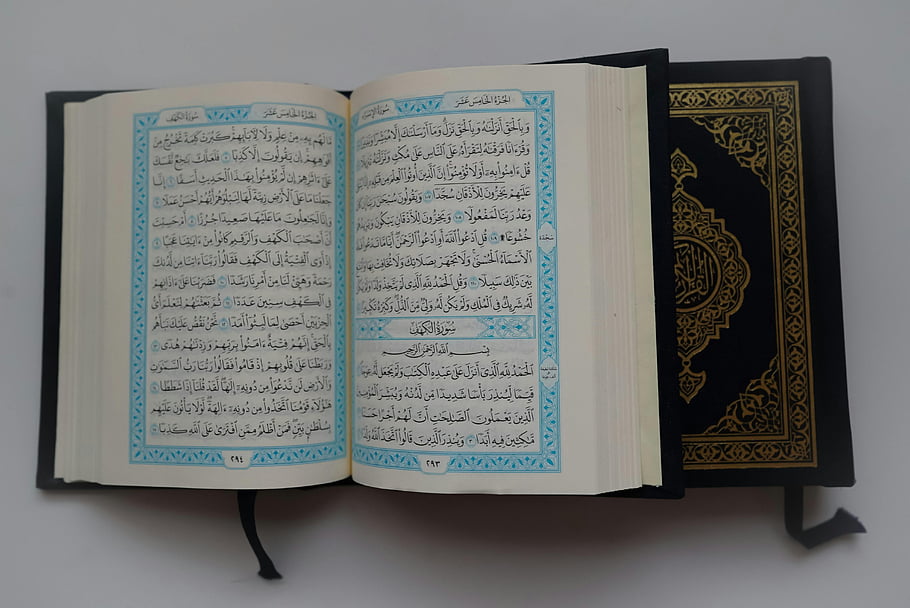 الجُزْءُ الخَامِسَ عَشَرَ سُورَةُ الإِسْرَاءِ
وَبِالْحَقِّ أَنزَلْنَٰهُ وَبِالْحَقِّ نَزَلَ وَمَا أَرْسَلْنَٰكَ إِلَّا مُبَشِّرًا
وَقُرْءَانًا فَرَقْنَٰهُ لِتَقْرَأَهُۥ عَلَى النَّاسِ عَلَىٰ مُكْثٍ وَنَزَّلْنَٰهُ
قُلْ ءَامِنُوا بِهِۦٓ أَوْ لَا تُؤْمِنُوٓا إِنَّ الَّذِينَ أُوتُوا الْعِلْمَ مِن قَبْلِهِۦٓ
عَلَيْهِمْ يَخِرُّونَ لِلْأَذْقَانِ سُجَّدًا ١٠٧ وَيَقُولُونَ سُبْحَٰنَ رَبِّنَآ
وَعْدُ رَبِّنَا لَمَفْعُولًا ١٠٨ وَيَخِرُّونَ لِلْأَذْقَانِ يَبْكُونَ
خُشُوعًا ۩ ١٠٩ قُلِ ادْعُوا اللَّهَ أَوِ ادْعُوا الرَّحْمَٰنَ أَيًّا مَّا تَدْعُوا
الْأَسْمَآءُ الْحُسْنَىٰ وَلَا تَجْهَرْ بِصَلَاتِكَ وَلَا تُخَافِتْ بِهَا
بَيْنَ ذَٰلِكَ سَبِيلًا ١١٠ وَقُلِ الْحَمْدُ لِلَّهِ الَّذِي لَمْ يَتَّخِذْ وَلَدًا
لَّهُۥ شَرِيكٌ فِي الْمُلْكِ وَلَمْ يَكُن لَّهُۥ وَلِيٌّ مِّنَ الذُّلِّ وَكَبِّرْهُ تَكْبِيرًا
سَجْدَة
سُورَةُ الكَهْفِ
بِسْمِ اللَّهِ الرَّحْمَٰنِ الرَّحِيمِ
الْحَمْدُ لِلَّهِ الَّذِيٓ أَنزَلَ عَلَىٰ عَبْدِهِ الْكِتَٰبَ وَلَمْ يَجْعَل لَّهُۥ
قَيِّمًا لِّيُنذِرَ بَأْسًا شَدِيدًا مِّن لَّدُنْهُ وَيُبَشِّرَ الْمُؤْمِنِينَ
الَّذِينَ يَعْمَلُونَ الصَّٰلِحَٰتِ أَنَّ لَهُمْ أَجْرًا حَسَنًا
مَّٰكِثِينَ فِيهِ أَبَدًا ٣ وَيُنذِرَ الَّذِينَ قَالُوا اتَّخَذَ اللَّهُ وَلَدًا
٢٩٣
الجُزْءُ الخَامِسَ عَشَرَ سُورَةُ الكَهْفِ
مَّا لَهُم بِهِۦ مِنْ عِلْمٍ وَلَا لِءَابَآئِهِمْ كَبُرَتْ كَلِمَةً تَخْرُجُ مِنْ
أَفْوَٰهِهِمْ إِن يَقُولُونَ إِلَّا كَذِبًا ٥ فَلَعَلَّكَ بَٰخِعٌ نَّفْسَكَ
عَلَىٰٓ ءَاثَٰرِهِمْ إِن لَّمْ يُؤْمِنُوا بِهَٰذَا الْحَدِيثِ أَسَفًا ٦ إِنَّا
جَعَلْنَا مَا عَلَى الْأَرْضِ زِينَةً لَّهَا لِنَبْلُوَهُمْ أَيُّهُمْ أَحْسَنُ عَمَلًا ٧
وَإِنَّا لَجَٰعِلُونَ مَا عَلَيْهَا صَعِيدًا جُرُزًا ٨ أَمْ حَسِبْتَ
أَنَّ أَصْحَٰبَ الْكَهْفِ وَالرَّقِيمِ كَانُوا مِنْ ءَايَٰتِنَا عَجَبًا ٩
إِذْ أَوَى الْفِتْيَةُ إِلَى الْكَهْفِ فَقَالُوا رَبَّنَآ ءَاتِنَا مِن لَّدُنكَ
رَحْمَةً وَهَيِّئْ لَنَا مِنْ أَمْرِنَا رَشَدًا ١٠ فَضَرَبْنَا عَلَىٰٓ ءَاذَانِهِمْ
فِي الْكَهْفِ سِنِينَ عَدَدًا ١١ ثُمَّ بَعَثْنَٰهُمْ لِنَعْلَمَ أَيُّ
الْحِزْبَيْنِ أَحْصَىٰ لِمَا لَبِثُوٓا أَمَدًا ١٢ نَّحْنُ نَقُصُّ عَلَيْكَ نَبَأَهُم
بِالْحَقِّ إِنَّهُمْ فِتْيَةٌ ءَامَنُوا بِرَبِّهِمْ وَزِدْنَٰهُمْ هُدًى ١٣
وَرَبَطْنَا عَلَىٰ قُلُوبِهِمْ إِذْ قَامُوا فَقَالُوا رَبُّنَا رَبُّ السَّمَٰوَٰتِ
وَالْأَرْضِ لَن نَّدْعُوَا مِن دُونِهِۦٓ إِلَٰهًا لَّقَدْ قُلْنَآ إِذًا شَطَطًا ١٤
هَٰٓؤُلَآءِ قَوْمُنَا اتَّخَذُوا مِن دُونِهِۦٓ ءَالِهَةً لَّوْلَا يَأْتُونَ عَلَيْهِم
بِسُلْطَٰنٍ بَيِّنٍ فَمَنْ أَظْلَمُ مِمَّنِ افْتَرَىٰ عَلَى اللَّهِ كَذِبًا ١٥
٢٩٤